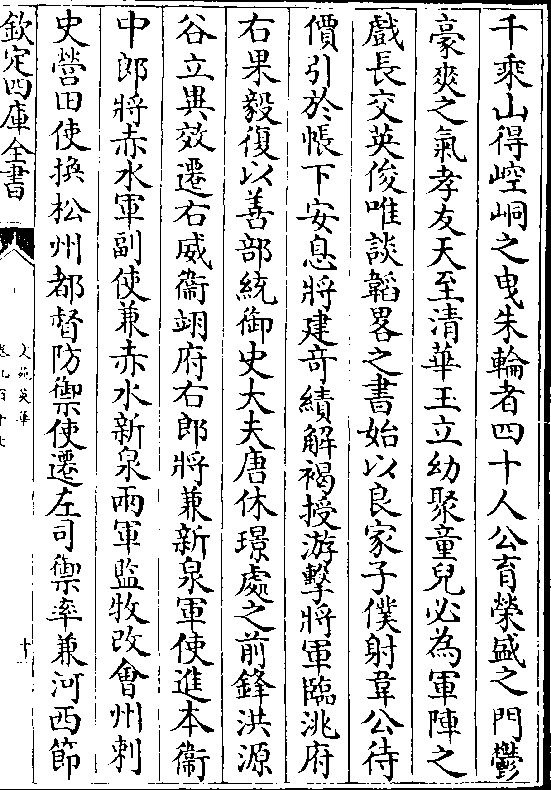 千乘山得崆峒之曳朱輪者四十人公育榮盛之門鬱
豪爽之氣孝友天至清華玉立幼聚童兒必為軍陣之
戲長交英俊唯談韜畧之書始以良家子僕射韋公待
價引於帳下安息將建竒績解褐授游擊將軍臨洮府
右果毅復以善部統御史大夫唐休璟處之前鋒洪源
谷立異效遷右威衞翊府右郎將兼新泉軍使進本衞
中郎將赤水軍副使兼赤水新泉兩軍監牧改會州刺
史營田使換松州都督防禦使遷左司禦率兼河西節
欽定四庫全書
文苑英華